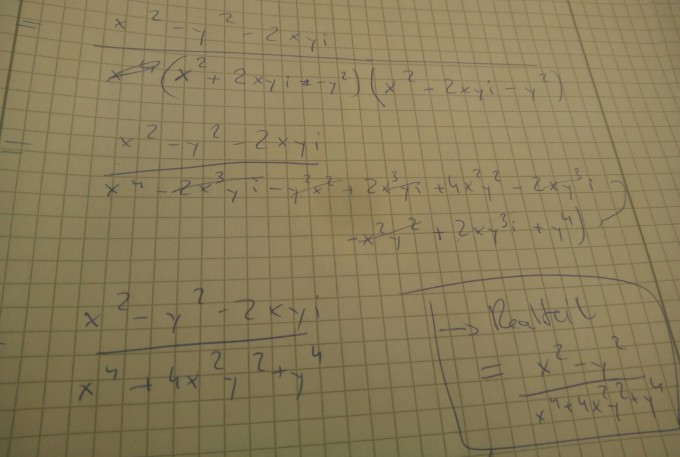 = x² - y² - 2xyi
(x² + 2xyi - y²)(x² - 2xyi - y²)
= x² - y² - 2xyi
x⁴ - 2x³yi - y²x² + 2x³yi + 4x²y² - 2xy³i
- x²y² + 2xy³i + y⁴)
x² - y² - 2xyi
x⁴ + 4x²y² + y⁴
→ Realteil
= x² - y²
x⁴ + 4x²y² + y⁴